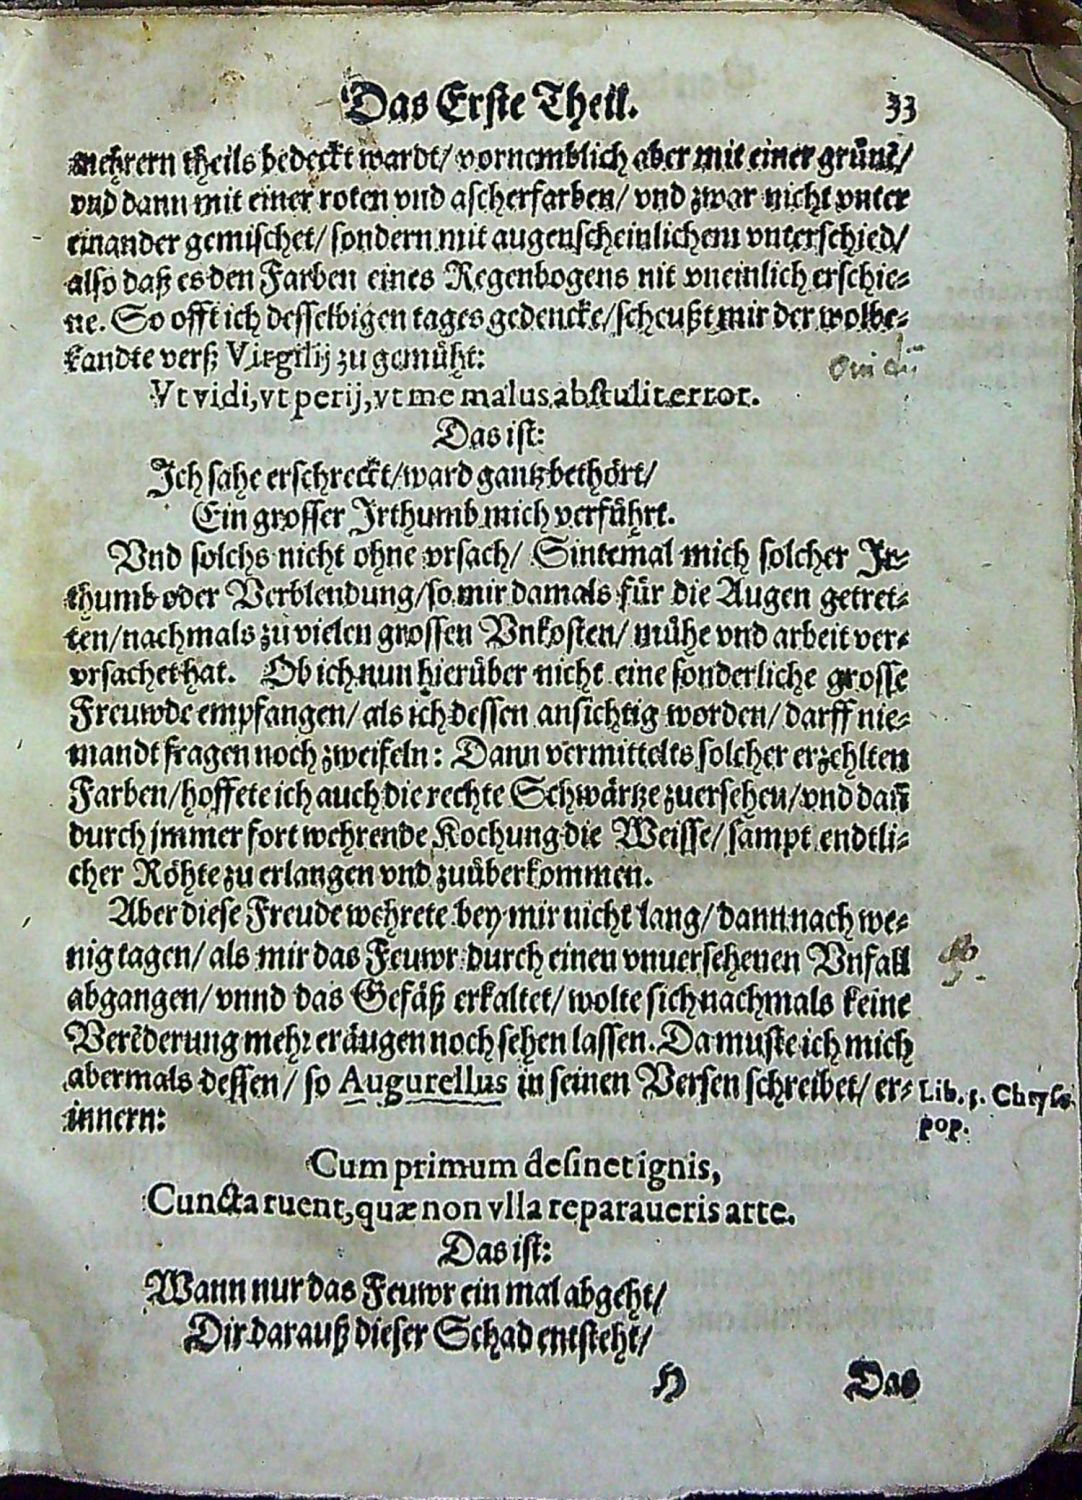 Das Erste Theil. 33
mehrern theils bedeckt wardt/ vornemblich aber mit einer grünẽ/
vnd dann mit einer roten vnd ascherfarben/ vnd zwar nicht vnter
einander gemischet/ sondern mit augenscheinlichem vnterschied/
also daß es den Farben eines Regenbogens nit vneinlich erschie⸗
ne. So offt ich desselbigen tages gedencke/ scheußt mir der wolbe⸗
kandte verß Virgilij zu gemüht:
Vt vidi, vt perij, vt me malus abstulit error.
Das ist:
Ich sahe erschreckt/ ward gantz bethört/
Ein grosser Irthumb mich verführt.
Vnd solchs nicht ohne vrsach/ Sintemal mich solcher Ir⸗
thumb oder Verblendung/ so mir damals für die Augen getret⸗
ten/ nachmals zu vielen grossen Vnkosten/ mühe vnd arbeit ver⸗
vrsachet hat. Ob ich nun hierüber nicht eine sonderliche grosse
Freuwde empfangen/ als ich dessen ansichtig worden/ darff nie⸗
mandt fragen noch zweifeln: Dann vermittelts solcher erzehlten
Farben/ hoffete ich auch die rechte Schwärtze zuersehen/ vnd dañ
durch jmmer fort wehrende Kochung die Weisse/ sampt endtli⸗
cher Röhte zu erlangen vnd zuüberkommen.
Aber diese Freude wehrete bey mir nicht lang/ dann nach we⸗
nig tagen/ als mir das Feuwr durch einen vnuersehenen Vnfall
abgangen/ vnnd das Gefäß erkaltet/ wolte sich nachmals keine
Verẽderung mehr eräugen noch sehen lassen. Da muste ich mich
abermals dessen/ so Augurellus in seinen Versen schreibet/ er⸗
innern:
Lib. 1. Chryso
pop.
Cum primum desinet ignis,
Cuncta ruent, quæ non vlla reparaueris arte.
Das ist:
Wann nur das Feuwr ein mal abgeht/
Dir darauß dieser Schad entsteht/
H Das